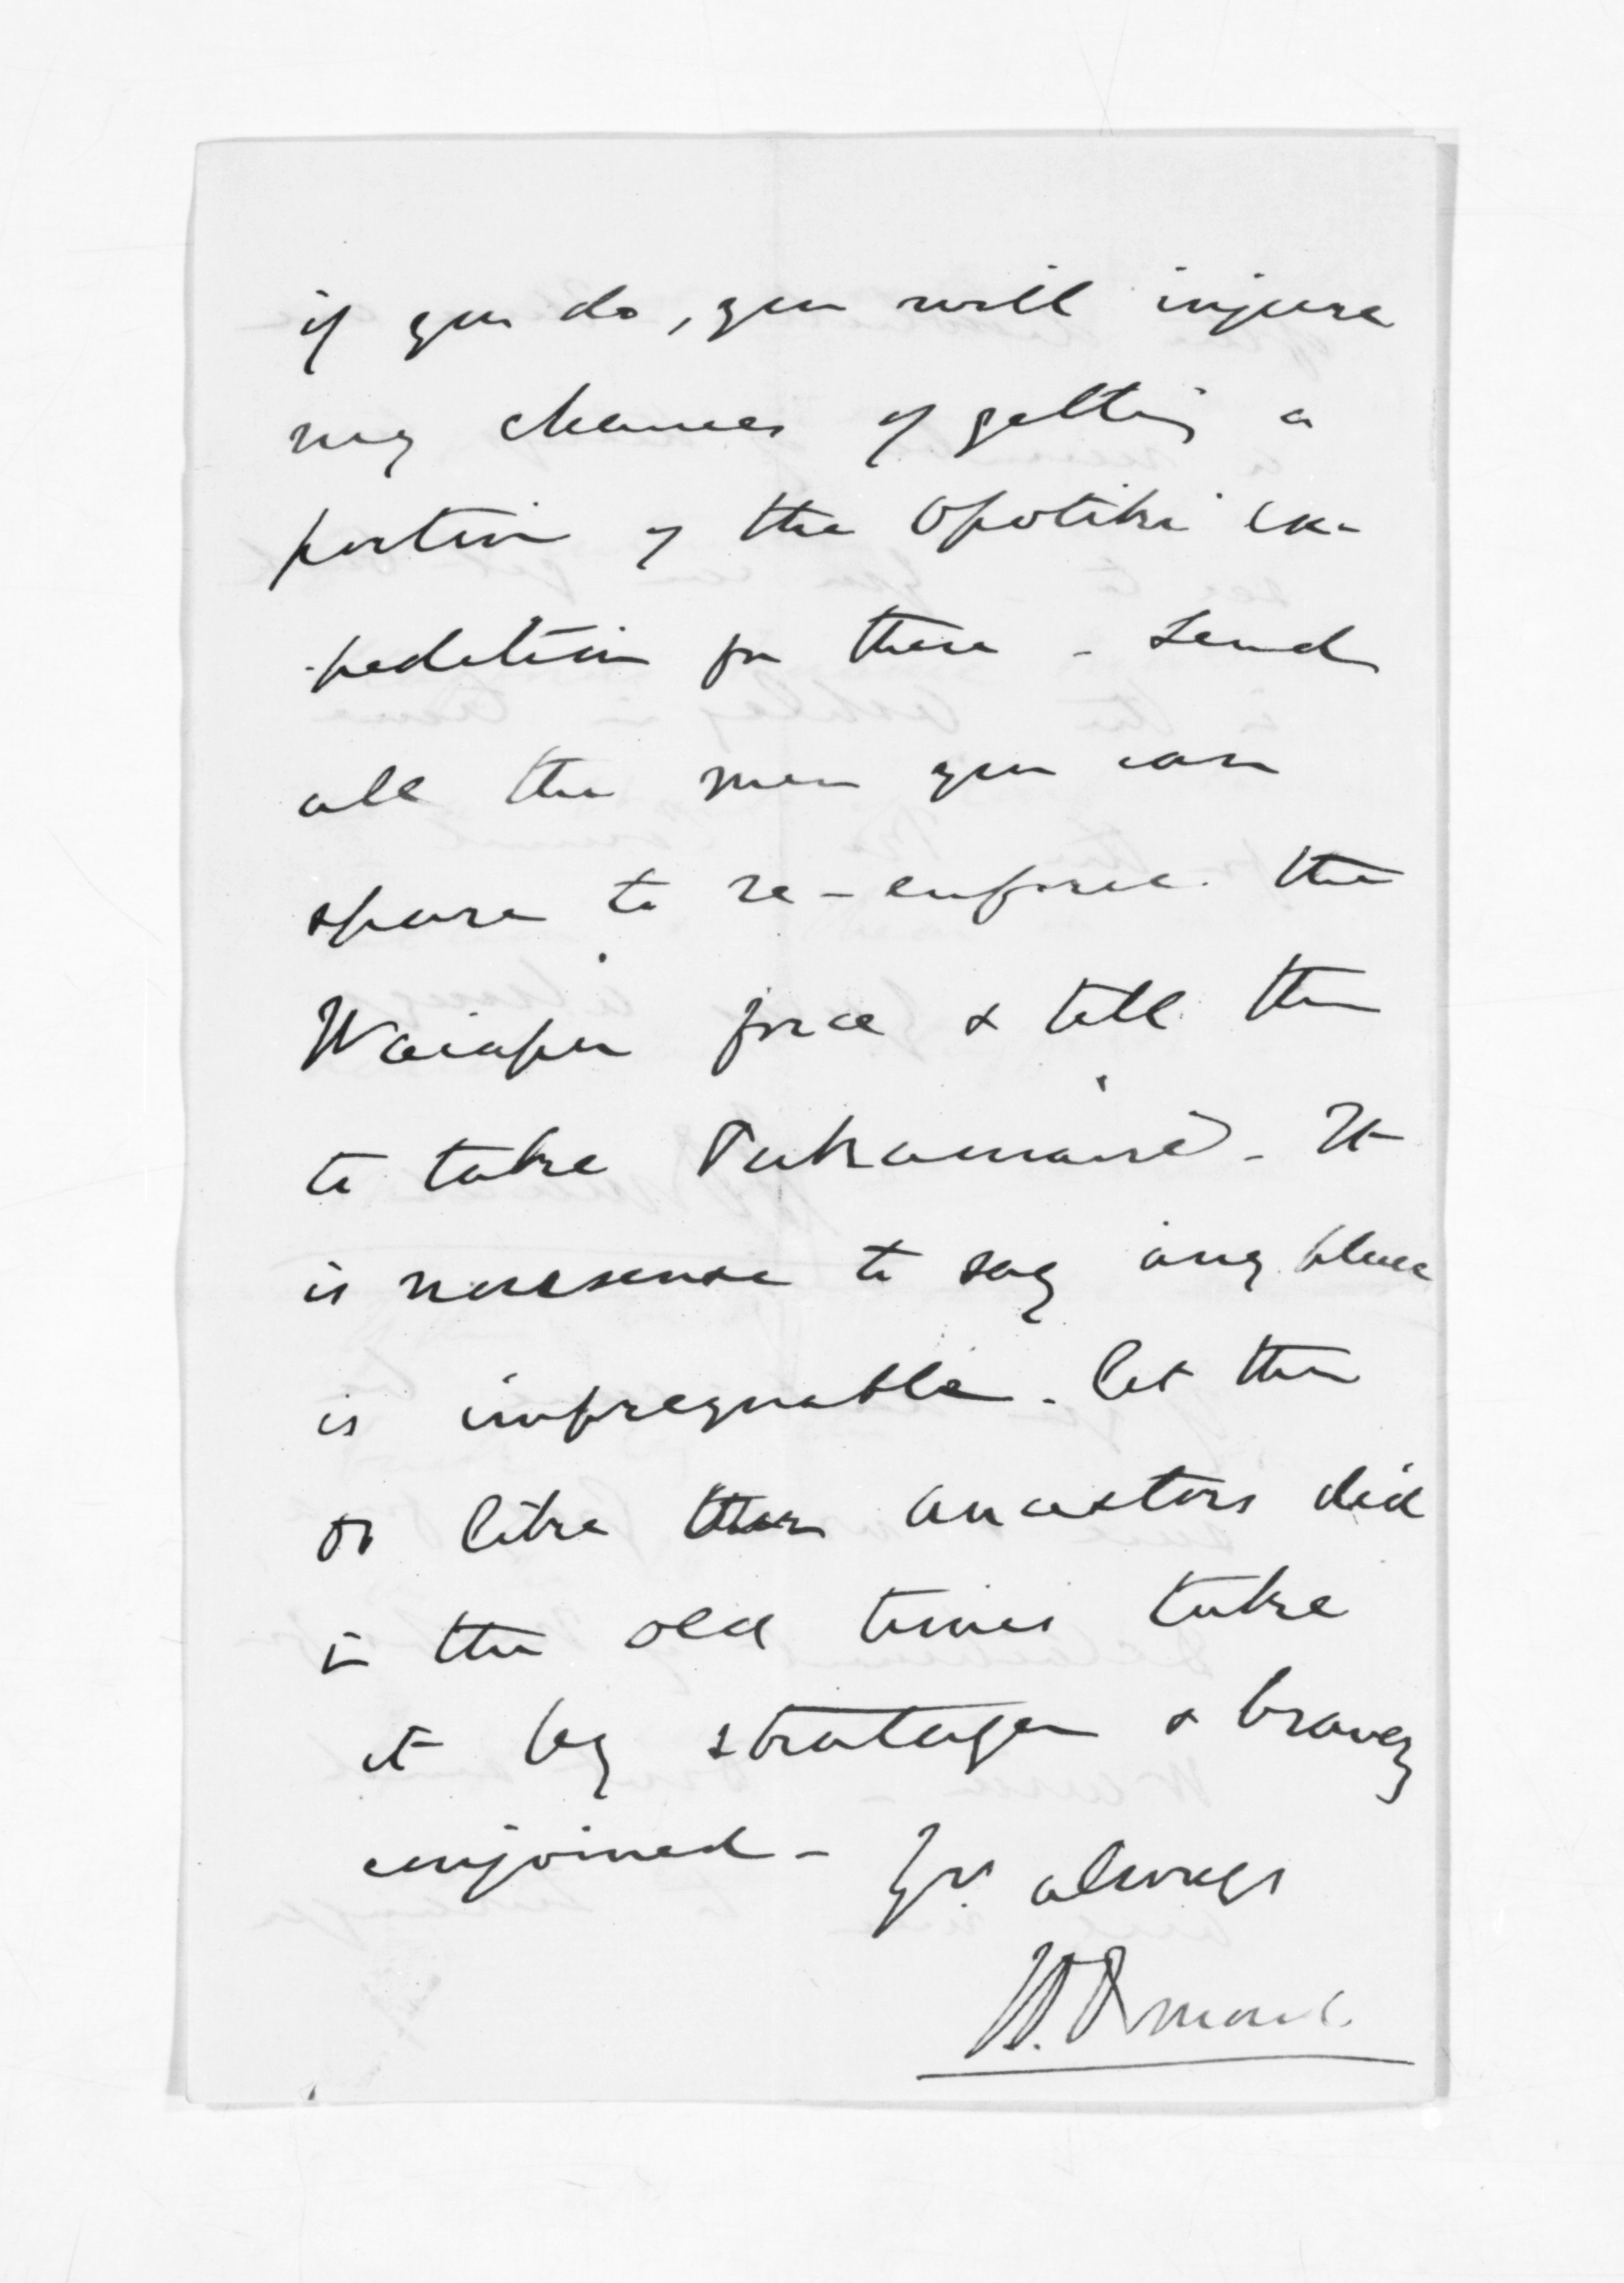 if you do, you will injure
my chances of getting a
portion of the Opotiki ex-
-pedition for there - Send
all the men you can
spare to re-enforce the
Waiapu force & tell them
to take Pukamaire - It
is nonsense to say any place
is impregnable - let them
or like their ancestors did
in the old times take
it by stratagem & bravery
conjoined - Yrs. always